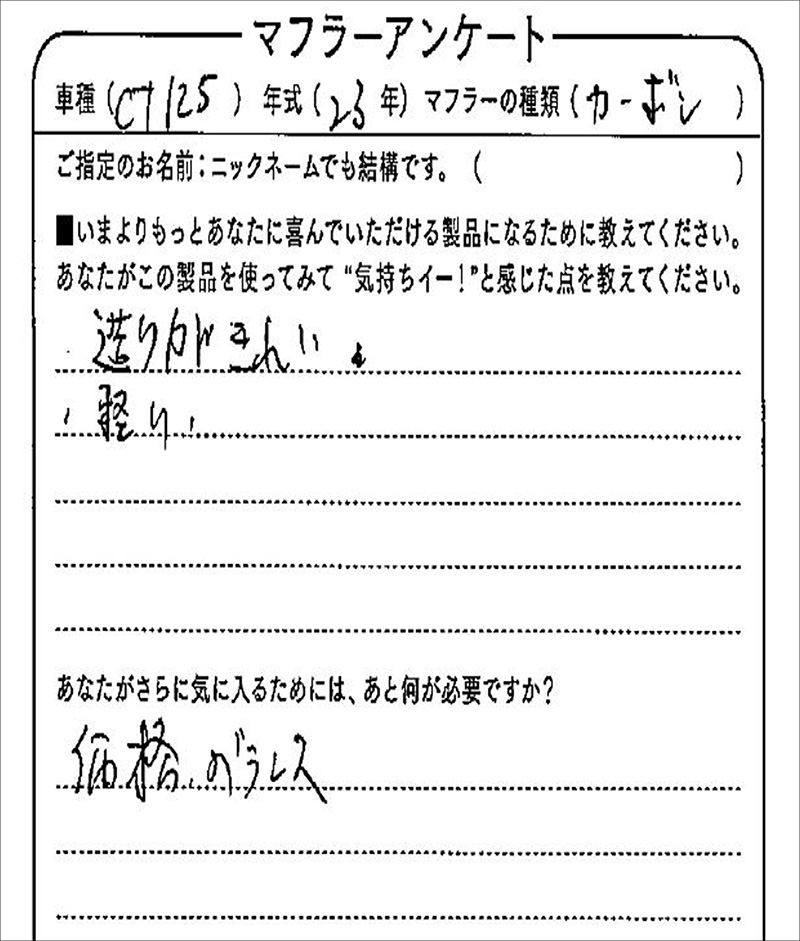 マフラーアンケート
車種（CT125）年式（23年）マフラーの種類（カーボン）
ご指定のお名前：ニックネームでも結構です。（　　　）
■いまよりもっとあなたに喜んでいただける製品になるために教えてください。
あなたがこの製品を使ってみて“気持ちイー！”と感じた点を教えてください。
・造りがきれい。
・軽い、
あなたがさらに気に入るためには、あと何が必要ですか？
価格、バランス